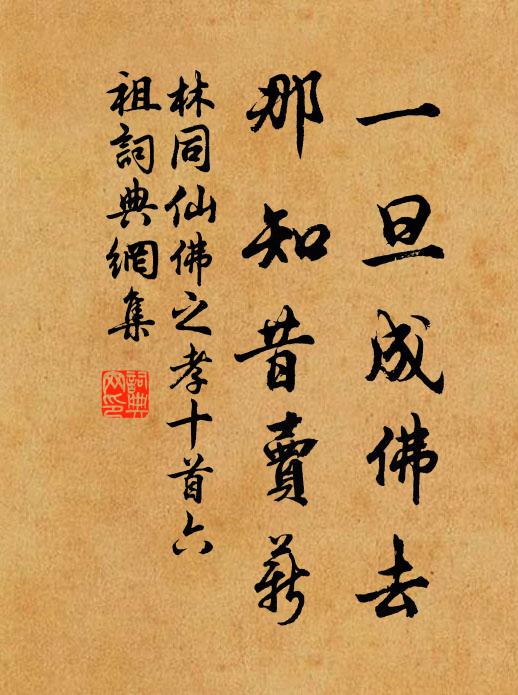 一旦成佛去
那知昔賣薪
林同仙佛之孝十首六
祖詞典網集
詞典網印